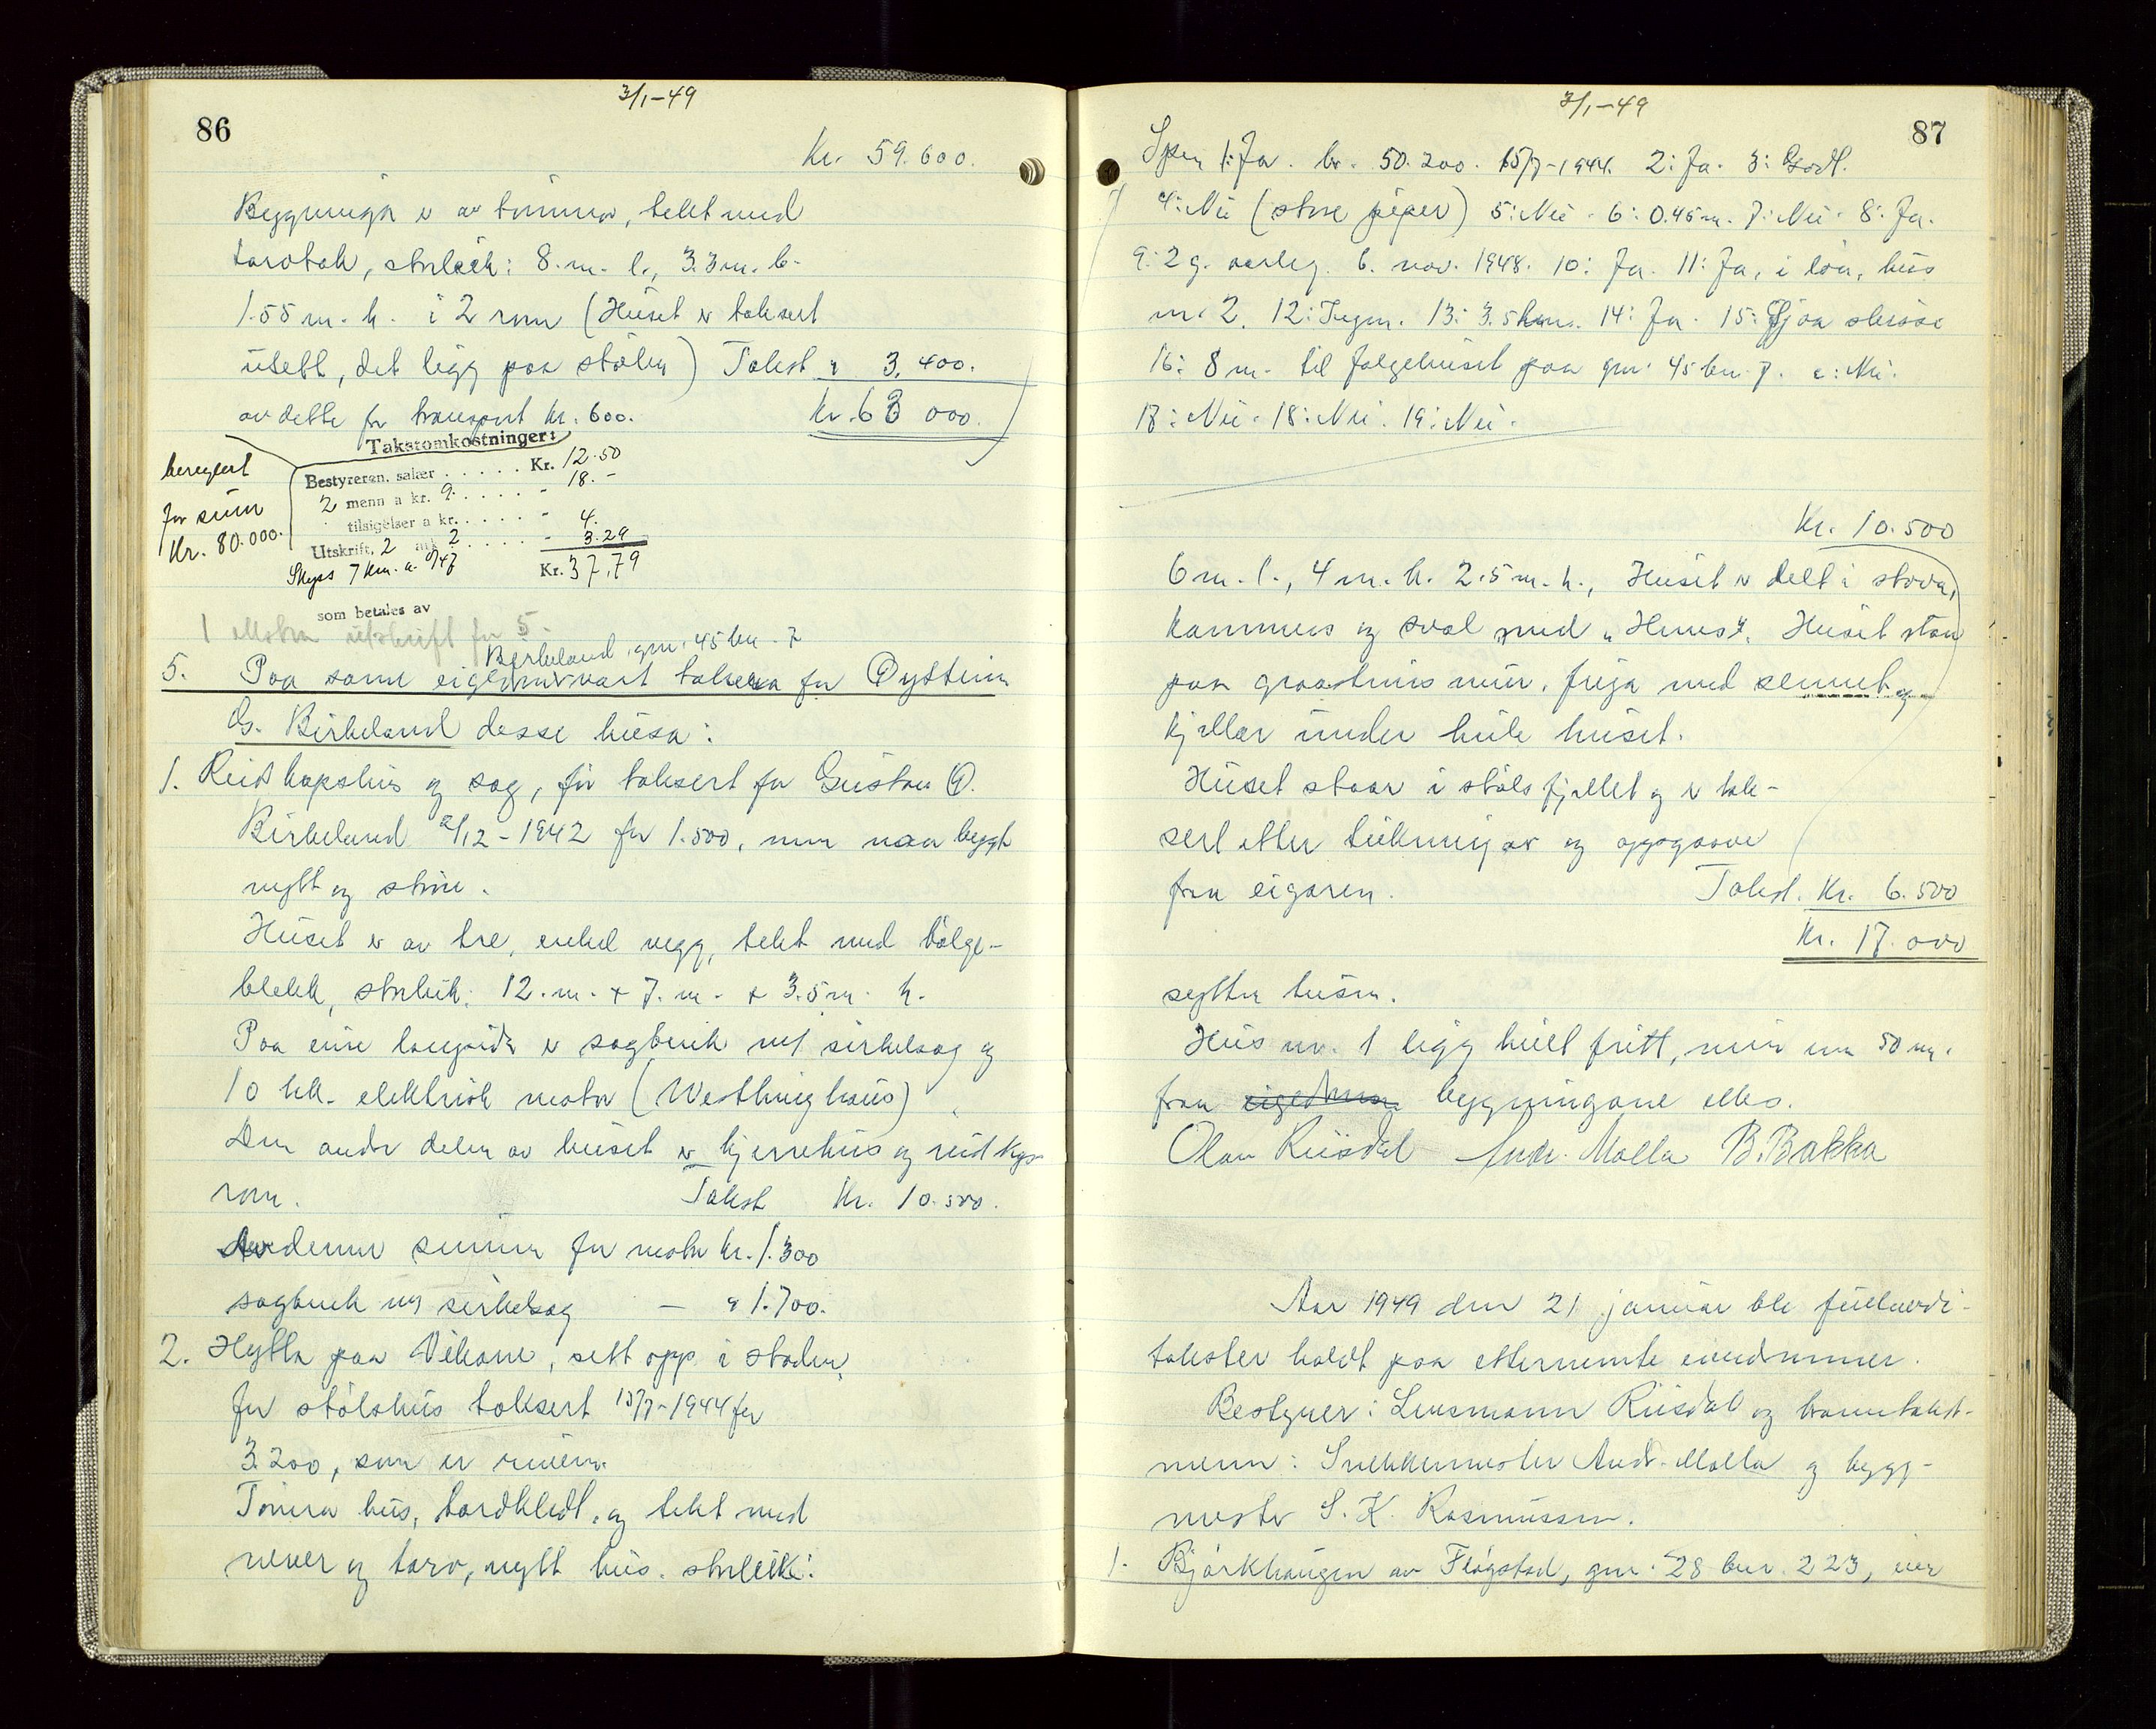 3/1-49
86
Kr. 59.600.
Bygningen er av timmer, tekt med
torvtak, storleik: 8.m. l., 3.3m. b.
1.55 m. h. i 2 rom (Huset er taksert
usett, det ligg paa stølen) Takst " 3,400.
av dette for transport kr. 600. Kr. 63 000.
Takstomkostninger:
beregnet for sum Kr. 80.000.
Bestyreren, salær . . . . . Kr. 12.50
2 menn a kr. 9. . . . . - 18.-
tilsigelser a kr. . . . . - 4.
Utskrift, 2 ark 2 . . . . - 3.29
Skyss 7 km. a 0/47 Kr. 37,79
som betales av
1 ekstra utskrift for 5.
Birkeland, gnr. 45 bnr. 7
5. Paa same eigedom vart taksera for Øystein
G. Birkeland desse husa:
1. Reidskapshus og sag, før taksert for Gustav Ø.
Birkeland 2/12-1942 for 1.500, men naa bygt
nytt og større.
Huset er av tre, enkel vegg, tekt med bølge-
blekk, storleik: 12.m. x 7.m. x 3.5m. h.
Paa eine langsida er sagbenk m/ sirkelsag og
10 hk. elektrisk motor (Westinghaus)
Den andre delen av huset er kjerrehus og reidskaps
rom. Takst Kr. 10.500.
Av denne summen for motor kr. 1.300
sagbenk m/ sirkelsag — " 1.700.
2. Hytta paa Vikane, sett opp i staden
for stølshus taksert 15/7-1944 for
3.200, som er reven.
Tømra hus, bordkledt, og tekt med
never og torv, nytt hus. storleik:
3/1-49
87
Spm 1: Ja. kr. 50.200. 15/7-1944. 2: Ja. 3: Godt.
4: Nei (store piper) 5: Nei. 6: 0.45m. 7: Nei. 8: Ja.
9: 2 g. aarleg. 6. nov. 1948. 10: Ja. 11: Ja, i løa, hus
nr. 2. 12: Ingen. 13: 3.5km. 14: Ja. 15: Sjaa skisse
16: 8 m. til følgehuset paa gnr. 45 bnr. 7. c: Nei.
17: Nei. 18: Nei. 19: Nei.
Kr. 10.500
6 m. l., 4 m. b. 2.5 m. h., Huset er delt i stova,
kammers og sval med "Hems". Huset staar
paa graasteins mur, fuga med sement og
kjellar under heile huset.
Huset staar i stølsfjellet og er tak-
sert etter teikningar og oppgaave
fraa eigaren. Takst. Kr. 6.500
Kr. 17.000
sytten tusen.
Hus nr. 1 ligg heilt fritt, meir enn 50 m.
fraa eigedomen bygningane elles.
Olav Riisdal Andr. Malla B. Bakka
Aar 1949 den 21 januar ble fullverdi-
takster holdt paa etternemte eiendommer.
Bestyrer: Lensmann Riisdal og branntakst-
menn: Snekkermester Andr. Malla og bygg-
mester S. K. Rasmussen.
1. Bjørkhaugen av Fløgstad, gnr. 28 bnr. 223, eier